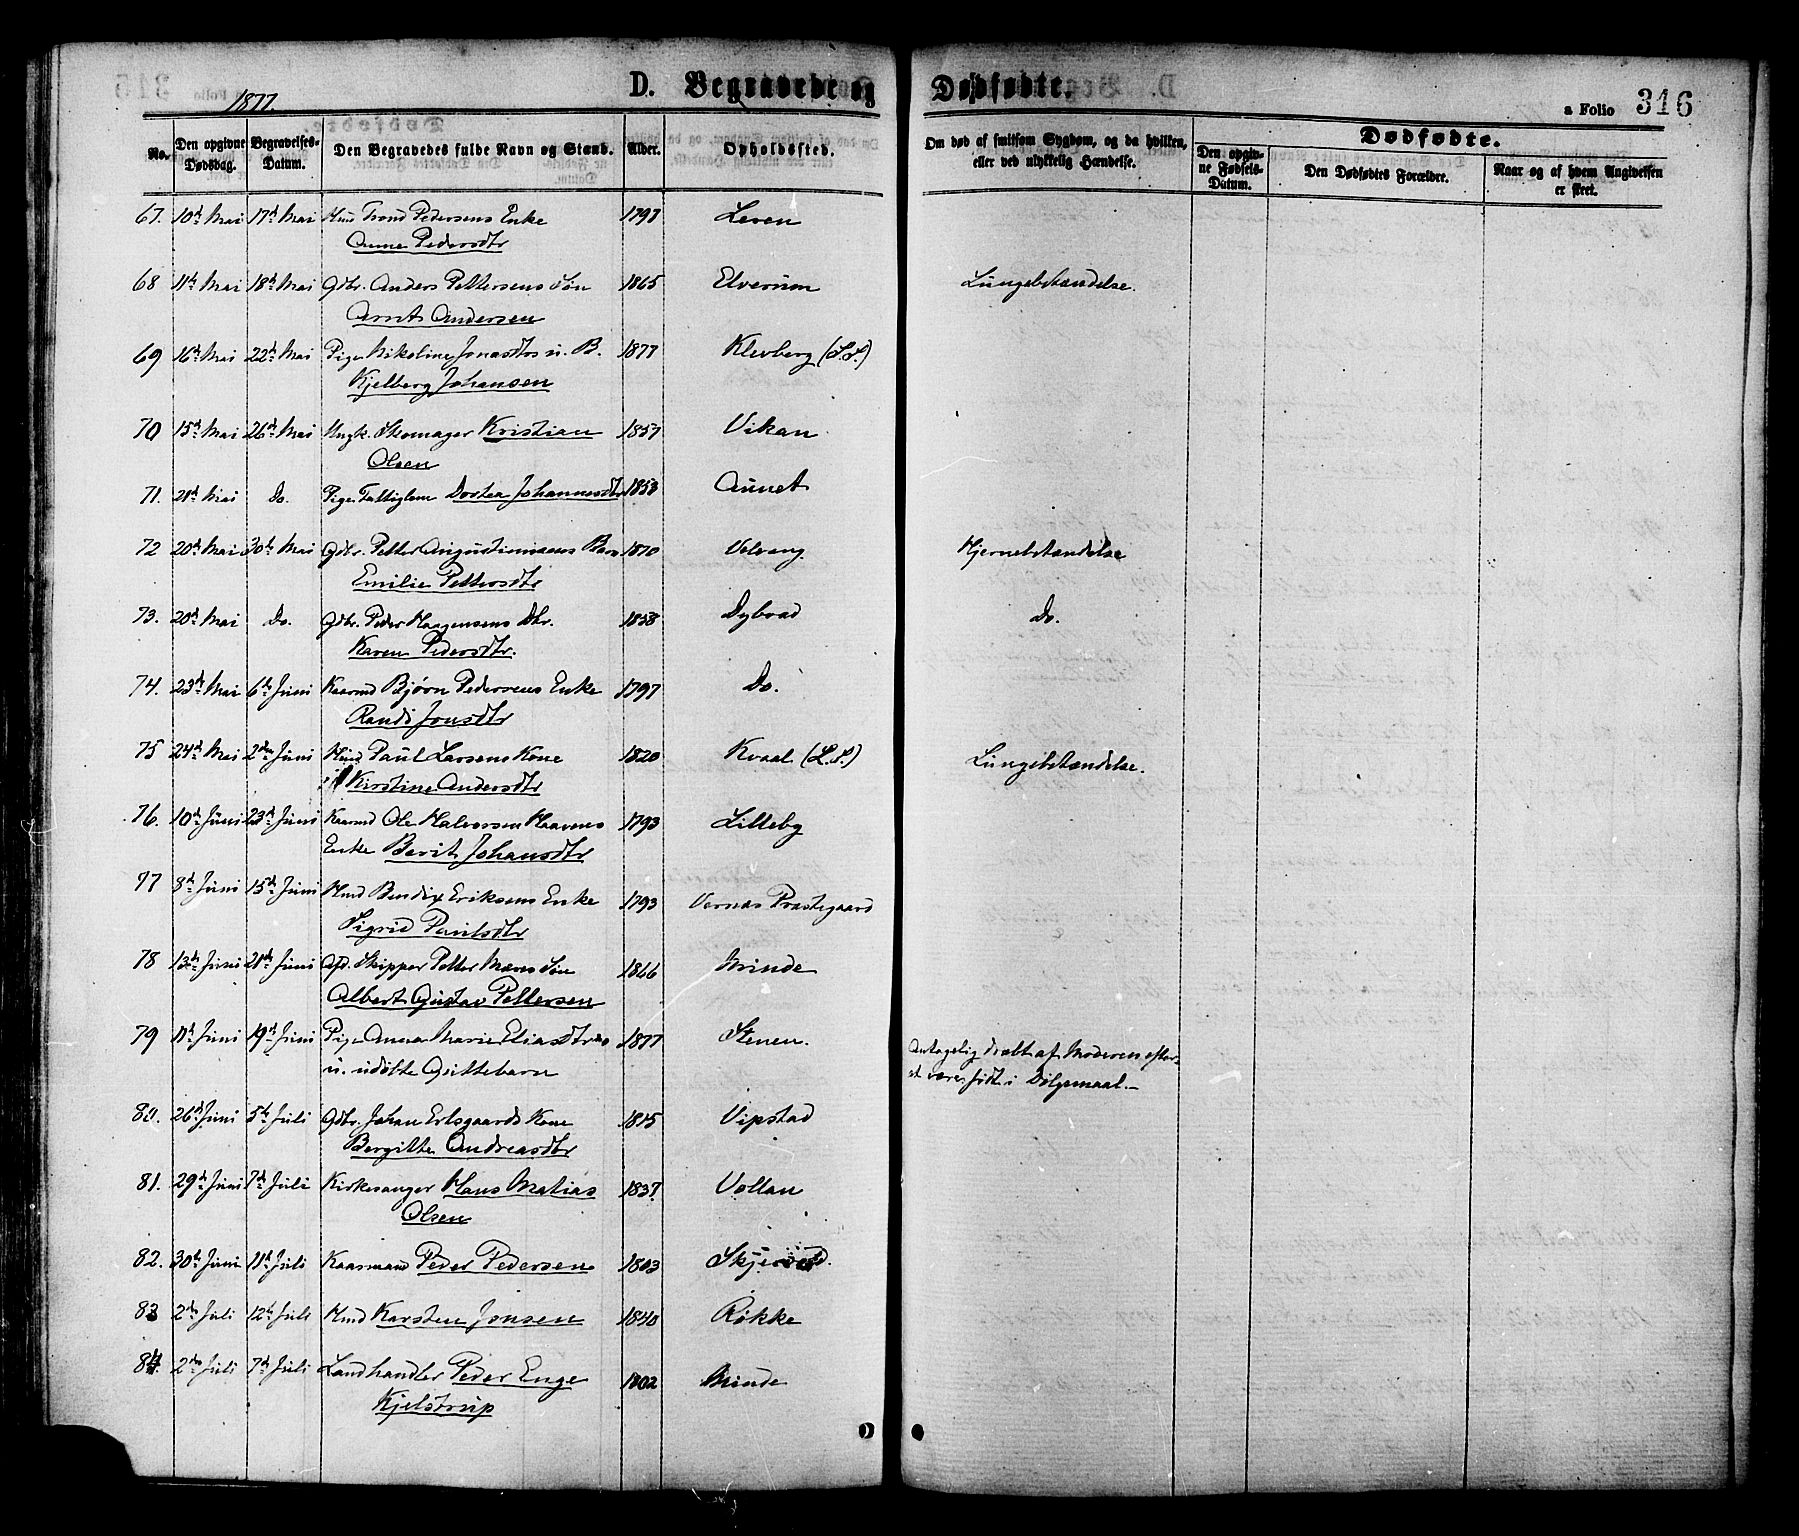 1877.
D. Begravede og Dødfødte.
a Folio 316
No. Den opgivne Dødsdag. Begravelses-Datum. Den Begravedes fulde Navn og Stand. Alder. Opholdssted. Om død af smitsom Sygdom, og da hvilken, eller ved ulykkelig Hændelse. Dødfødte. Den opgivne Fødsels-Datum. Den Dødfødtes Forældre. Naar og af hvem Angivelsen er sket.
67. 10de Mai 17de Mai Hmd Trond Pedersens Enke 1797 Leren
Anne Pedersdtr
68 11te Mai 18de Mai Gdbr. Anders Pettersens Søn 1865 Elverum Lungebetændelse.
Arnt Andersen
69 16de Mai 22de Mai Pige Nikoline Jonasdtrs u. B. 1877 Klevberg (L.S.)
Kjelberg Johansen
70 15de Mai 26de Mai Ungk. Skomager Kristian 1857 Vikan
Olsen
71. 21de Mai Do. Pige Fattiglem Dortea Johannesdtr 1853 Aunet
72 20de Mai 30te Mai Gdbr. Petter Augustinusens Barn 1870 Velvang. Hjernebetændelse
Emilie Pettersdtr
73. 20de Mai Do. Gdbr. Peder Haagensens Dtr. 1858 Dybvad Do.
Karen Pedersdtr.
74. 23de Mai 6te Juni Kaarmd Bjørn Pedersens Enke 1797 Do.
Randi Jonsdtr
75 24de Mai 2den Juni Hmd Paul Larsens Kone 1820 Kvaal (L.S.) Lungebetændelse.
Kirstine Andersdtr
76. 10de Juni 23de Juni Kaarmd Ole Halvorsen Haavnes 1793 Lilleby
Enke Berit Johansdtr
77 8de Juni 15de Juni Hmd Bendix Eriksens Enke 1793 Vernas Prastegaard
Sigrid Paulsdtr
78 13de Juni 21de Juni Afd. Skipper Petter Mæns Søn 1866 Minde
Albert Gustav Pettersen
79 11te Juni 19de Juni Pige Anna Marie Eliasdtrs 1877 Stenen. Antagelig dræbt af Moderen efter
u. udøbte Guttebarn at være født i Dølgsmaal.
80. 26de Juni 5te Juli Gdbr. Johan Ertsgaards Kone 1815 Vipstad
Bergitte Andreasdtr
81. 29de Juni 7de Juli Kirkesanger Hans Matias 1837 Vollan
Olsen
82. 30te Juni 11te Juli Kaarmand Peder Pedersen 1803
83 2den Juli 12te Juli Hmd Karsten Jonsen 1840 Røkke
84. 2den Juli 7de Juli Landhandler Peder Enge 1802 Minde
Kjelstrup